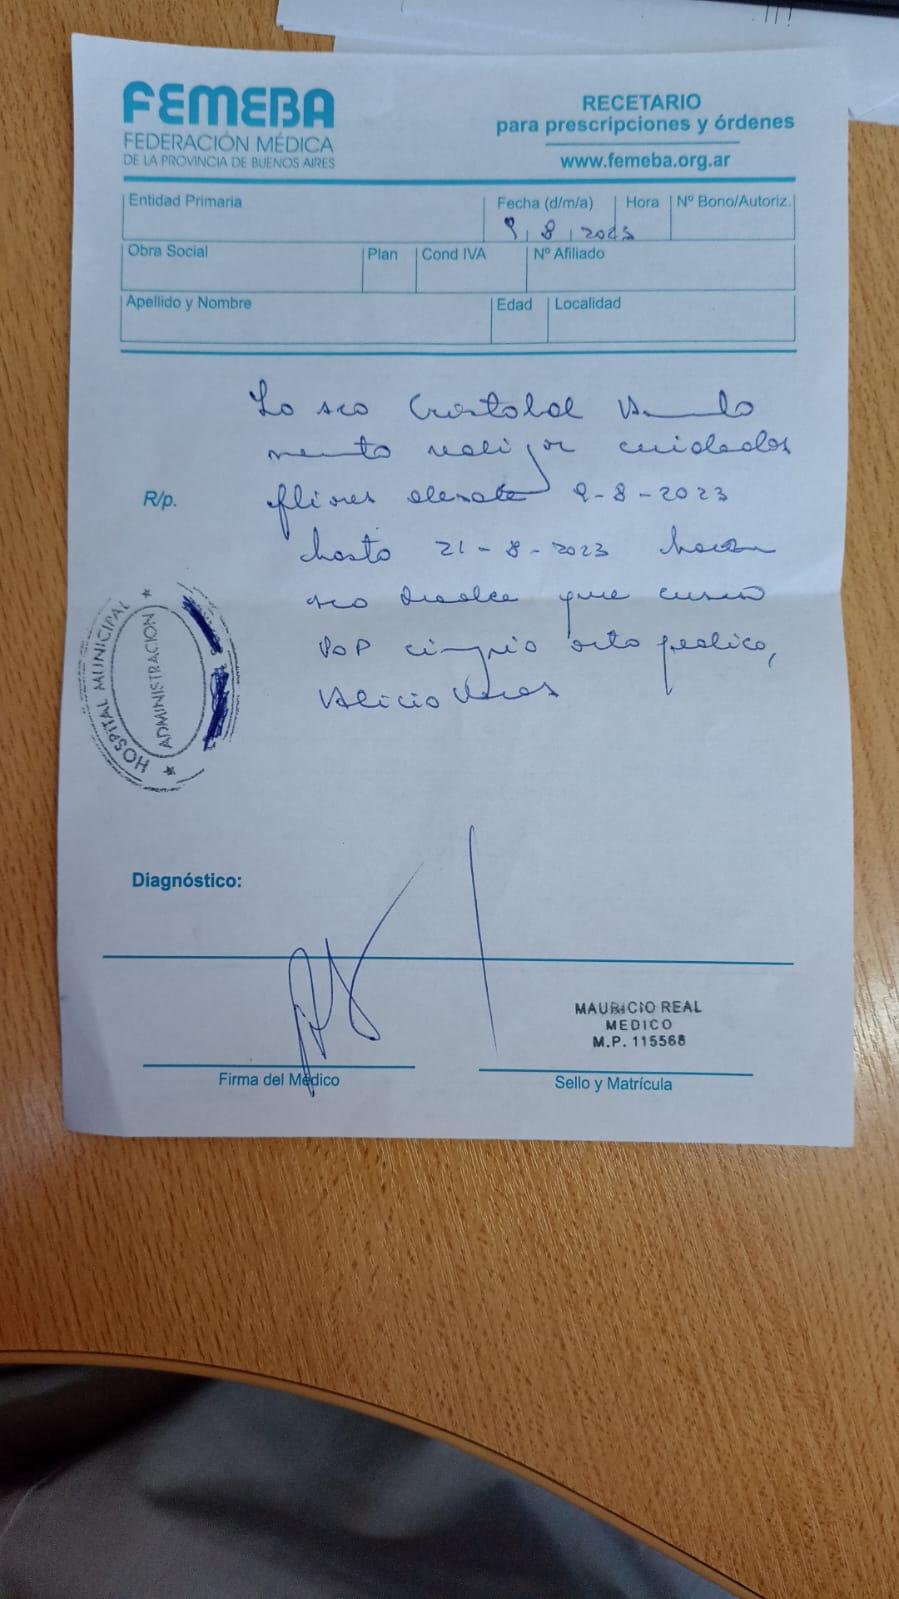 FEMEBA
FEDERACIÓN MÉDICA
DE LA PROVINCIA DE BUENOS AIRES
RECETARIO
para prescripciones y órdenes
www.femeba.org.ar
Entidad Primaria
Fecha (d/m/a) Hora Nº Bono/Autoriz.
9 8 2023
Obra Social Plan Cond IVA Nº Afiliado
Apellido y Nombre Edad Localidad
La sra Cristobal
realizar cuidados
R/p. flires 9-8-2023
hasta 21-8-2023
sra que
POP cirugia ortopedica,
Alicia
HOSPITAL MUNICIPAL
ADMINISTRACION
Diagnóstico:
MAURICIO REAL
MEDICO
M.P. 115568
Firma del Médico
Sello y Matrícula